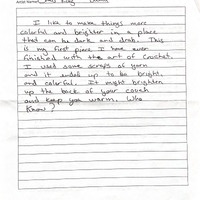 I like to make things more
colorful and brighter in a place
that can be dark and drab. This
is my first piece I have ever
finished with the art of Crochet.
I used some scraps of yarn
and it ended up to be bright,
and colorful. It might brighten
up the back of your couch
and keep you warm. Who
Know?